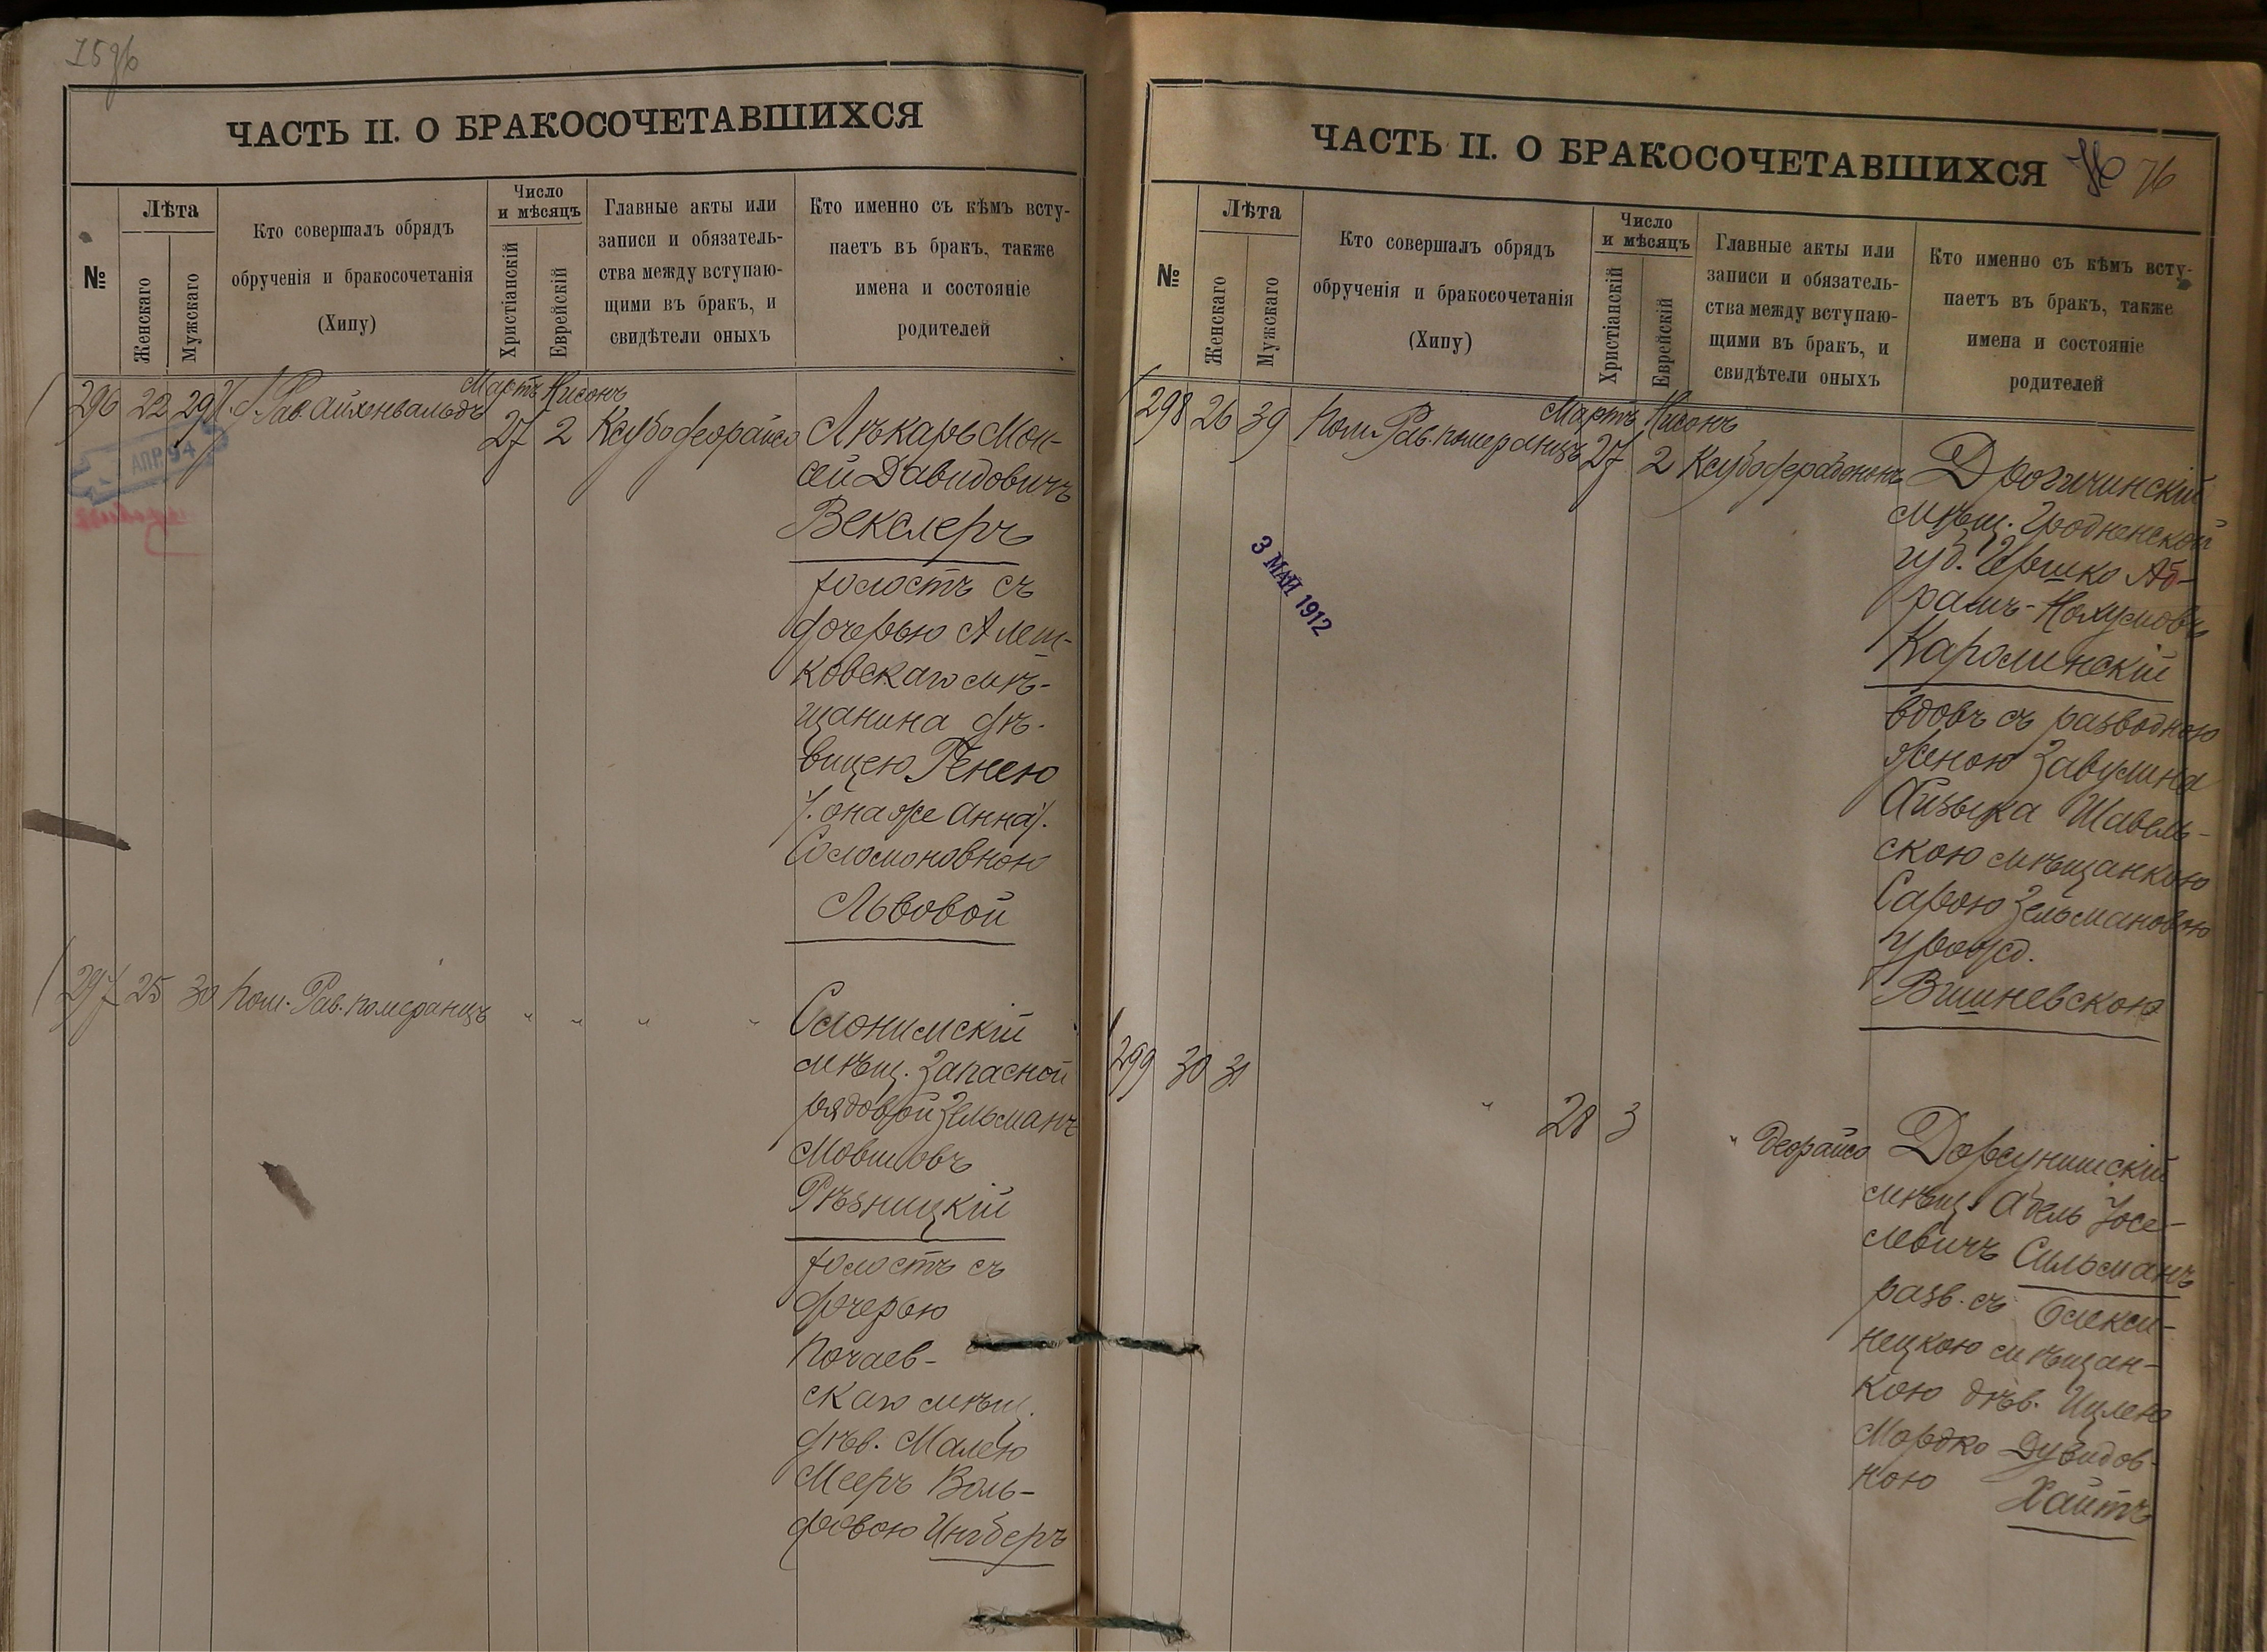 75об
ЧАСТЬ II. О БРАКОСОЧЕТАВШИХСЯ
№
Лѣта
Женскаго
Мужскаго
Кто совершалъ обрядъ
обрученія и бракосочетанія
(Хипу)
Число
и мѣсяцъ
Христіанскій
Еврейскій
Главные акты или
записи и обязатель-
ства между вступаю-
щими въ бракъ, и
свидѣтели оныхъ
Кто именно съ кѣмъ всту-
паетъ въ бракъ, также
имена и состояніе
родителей
296 22 29 Рав. Айхенвальдъ
Мартъ Нисонъ
27 2 Ксубо деорайсо
АПР. 94
Лѣкарь Мои-
сей Давидовичъ
Векслеръ
холостъ съ
дочерью Алеш-
ковскаго мѣ-
щанина дѣ-
вицею Генею
/. она же Анна/.
Соломоновною
Львовой
297 25 30 Пом. Рав. Померанцъ " " " "
Слонимскій
мѣщ. Запасной
рядовой Зельманъ
Мовшовъ
Рѣзницкій
холостъ съ
дочерью
Почаев-
скаго мѣщ.
дѣв. Малею
Мееръ Воль-
фовою Ингберъ
ЧАСТЬ II. О БРАКОСОЧЕТАВШИХСЯ
76 76
№
Лѣта
Женскаго
Мужскаго
Кто совершалъ обрядъ
обрученія и бракосочетанія
(Хипу)
Число
и мѣсяцъ
Христіанскій
Еврейскій
Главные акты или
записи и обязатель-
ства между вступаю-
щими въ бракъ, и
свидѣтели оныхъ
Кто именно съ кѣмъ всту-
паетъ въ бракъ, также
имена и состояніе
родителей
298 26 39 Пом. Рав. Померанцъ
Мартъ Нисонъ
27 2 Ксубо дерабононъ
3 МАЙ 1912
Дрогичинскій
мѣщ. Гродненской
губ. Гершко Аб-
рамъ-Нохумовъ
Каролинскій
вдовъ съ разводною
женою Завулина
Айзыка Шавель-
скою мѣщанкою
Сарою Зельмановою
урожд.
Вишневскою
299 30 31 " 28 3 " деорайсо
Дорсунишскій
мѣщ. Абель Іосе-
левичъ Сильманъ
разв. съ Олекси-
нецкою мѣщан-
кою дѣв. Ицлею
Мордко Дувидов-
ною Хаитъ